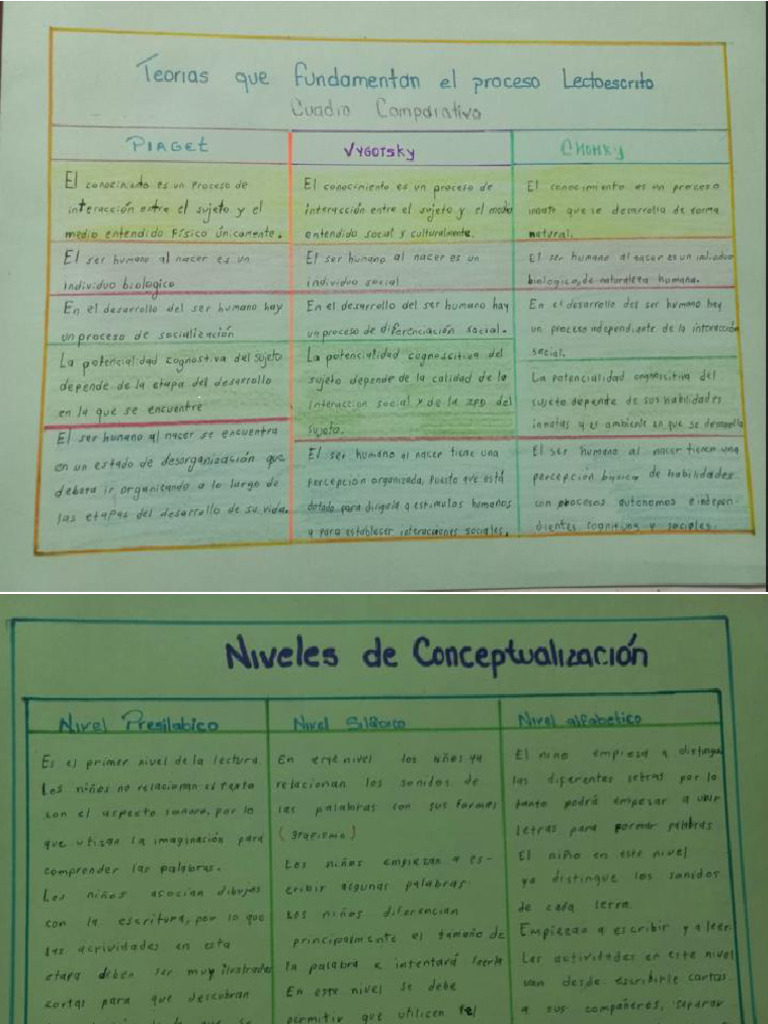 Teorias que fundamentan el proceso Lectoescrito
Cuadro Comparativo
PIAGET
El conocimiento es un proceso de
interacción entre el sujeto y el
medio entendido físico únicamente.
El ser humano al nacer es un
individuo biologico
En el desarrollo del ser humano hay
un proceso de socialización
La potencialidad cognostiva del sujeto
depende de la etapa del desarrollo
en la que se encuentre
El ser humano al nacer se encuentra
en un estado de desorganización que
debera ir organizando a lo largo de
las etapas del desarrollo de su vida.
VYGOTSKY
El conocimiento es un proceso de
interacción entre el sujeto y el medio
entendido social y culturalmente.
El ser humano al nacer es un
individuo social
En el desarrollo del ser humano hay
un proceso de diferenciación social.
La potencialidad cognoscitiva del
sujeto depende de la calidad de la
interaccion social y de la ZPD del
sujeto.
El ser humano al nacer tiene una
percepción organizada, puesto que está
dotado para dirigirla a estimulos humanos
y para establecer interacciones sociales.
CHOMKY
El conocimiento es un proceso
innato que se desarrolla de forma
natural.
El ser humano al nacer es un individuo
biologico, de naturaleza humana.
En el desarrollo del ser humano hay
un proceso independiente de la interacción
social.
La potencialidad cognoscitiva del
sujeto depende de sus habilidades
innatas y el ambiente en que se desarrolla
El ser humano al nacer tienen una
percepción basica de habilidades
con procesos autonomos e indepen-
dientes cognitivos y sociales.
Niveles de Conceptualización
Nivel Presilabico
Es el primer nivel de la lectura.
Los niños no relacionan el texto
con el aspecto sonoro, por lo
que utilizan la imaginación para
comprender las palabras.
Los niños asocian dibujos
con la escritura, por lo que
las actividades en esta
etapa deben ser muy ilustradas
cortas para que descubran
Nivel Silábico
En este nivel los niños ya
relacionan los sonidos de
las palabras con sus formas
(grafismo)
Los niños empiezan a es-
cribir algunas palabras
Los niños diferencian
principalmente el tamaño de
la palabra e intentará leerla
En este nivel se debe
permitir que utilicen el
Nivel alfabetico
El niño empieza a distinguir
las diferentes letras por lo
tanto podrá empezar a unir
letras para formar palabras
El niño en este nivel
ya distingue los sonidos
de cada letra.
Empiezan a escribir y a leer.
Las actividades en este nivel
van desde escribirle cartas
a sus compañeros, separar